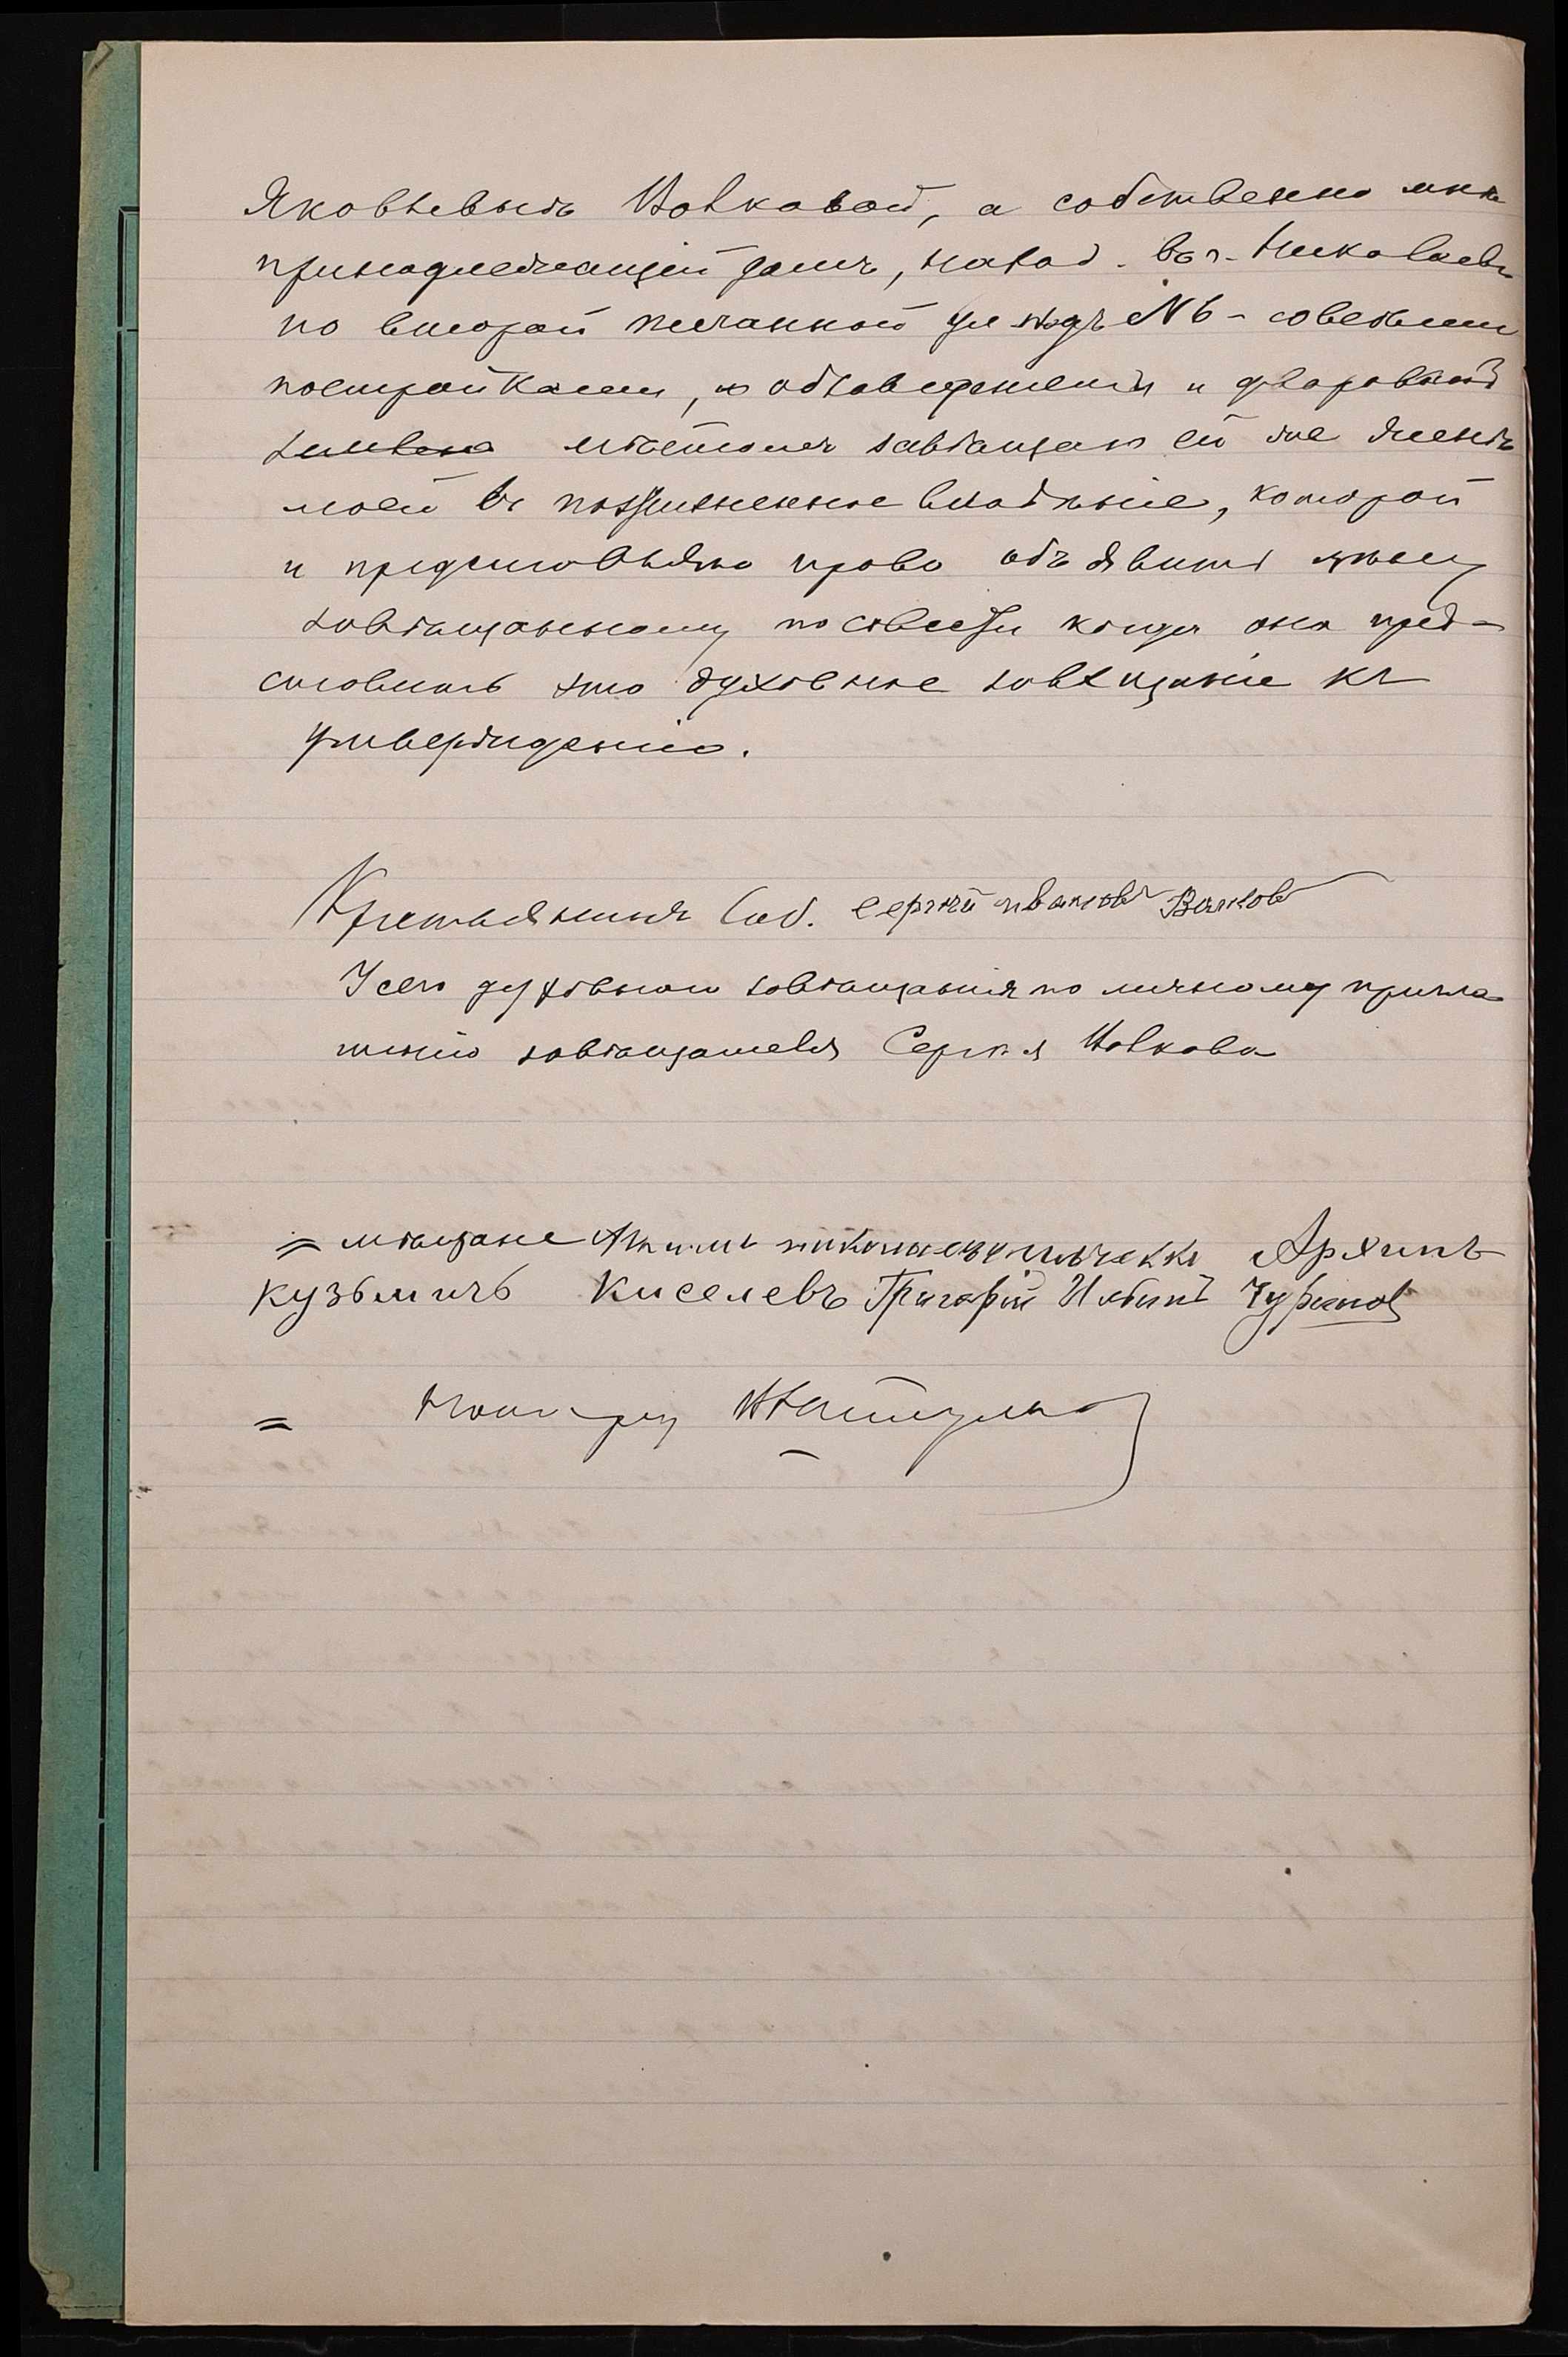 Яковлевнѣ Волковой, а собственно мнѣ
принадлежащій домъ, наход. въ г. Николаевѣ
по второй песчанной ул подъ № 6 - со всѣми
постройками, и обзаведеніемъ и дворовымъ
мѣстомъ завѣщаю ей же женѣ
моей въ пожизненное владѣніе, которой
и предоставляю право объявить цѣну
завѣщанному по совѣсти когда она пред-
ставитъ это духовное завѣщаніе къ
утвержденію.
Крестьянинъ Соб. Сергѣй Ивановъ Волковъ
У сего духовнаго завѣщанія по личному пригла
шенію завѣщателя Сергѣя Волкова
= мѣщане Архипъ
Кузьмичъ Киселевъ Григорій Ильинъ Чурсинов
=